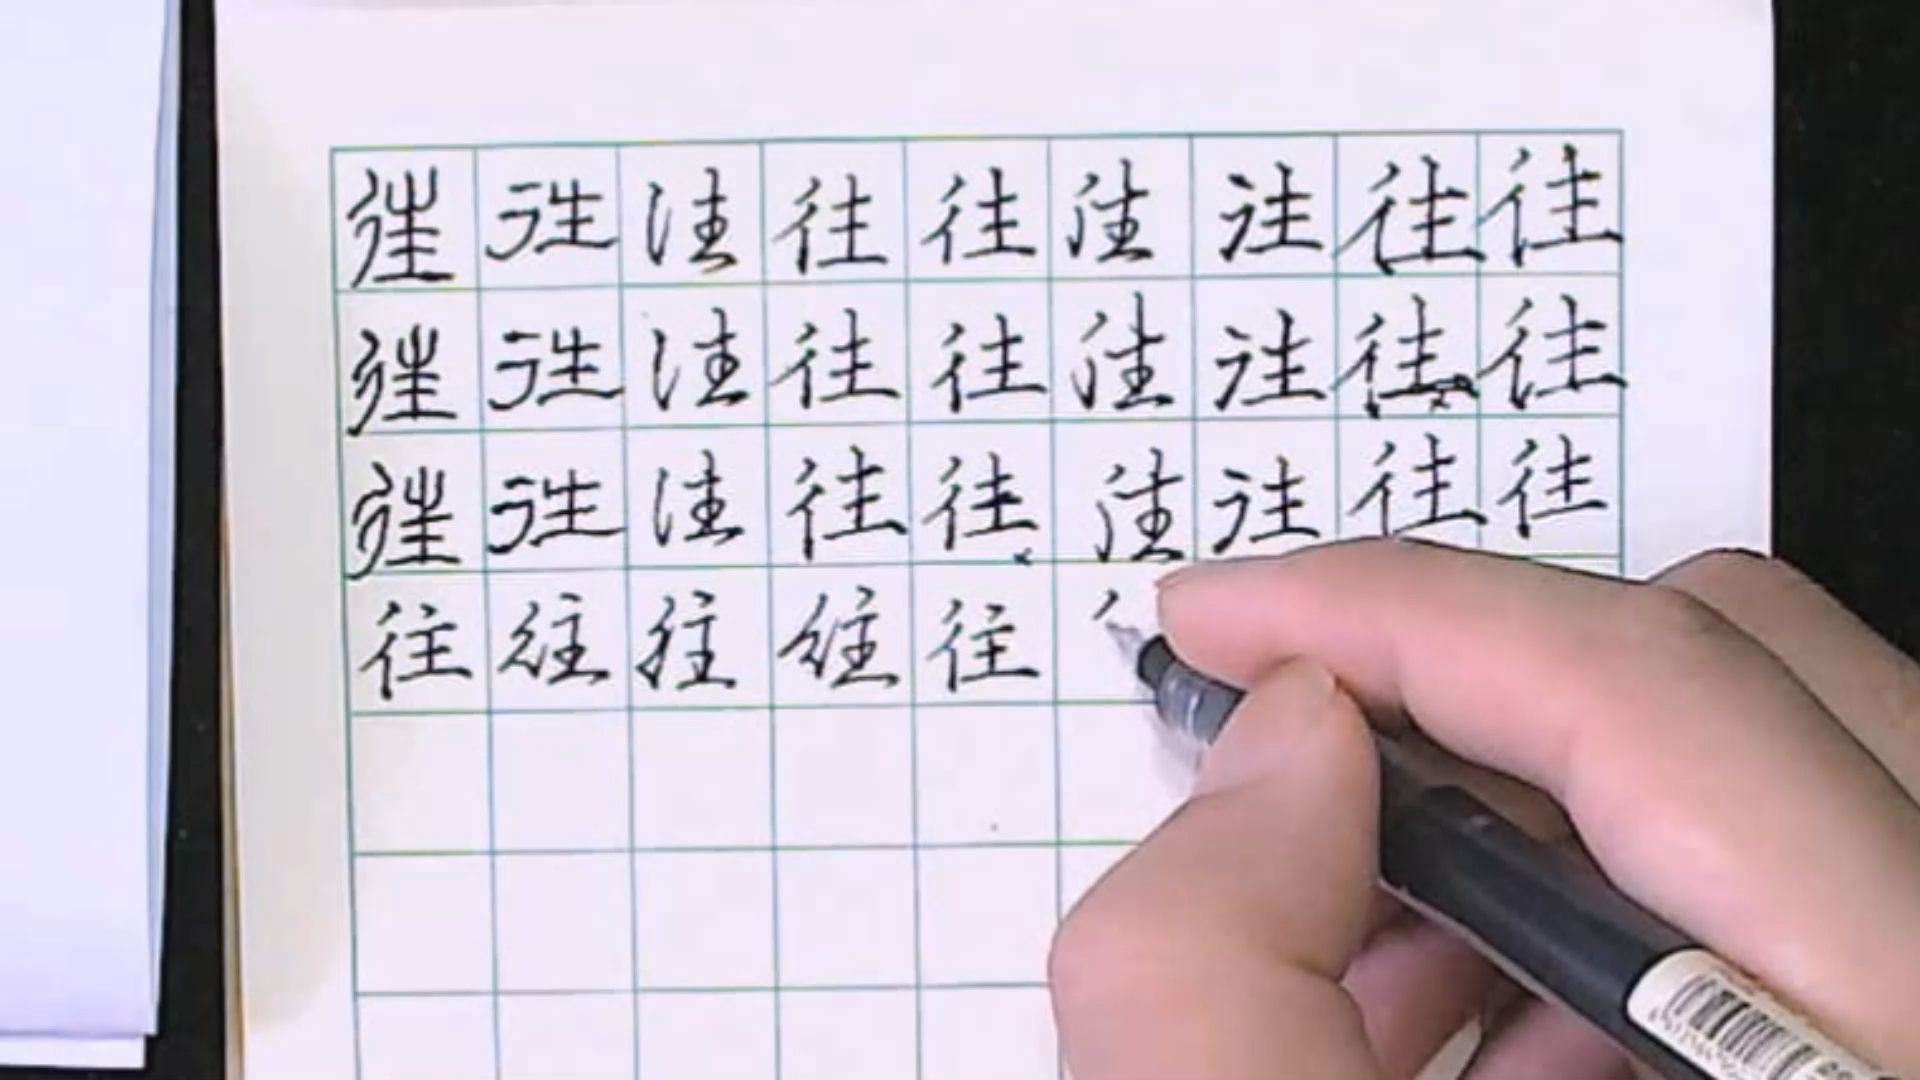 往往往往往往往往往
往往往往往往往往往
往往往往往往往往往
往往往往往